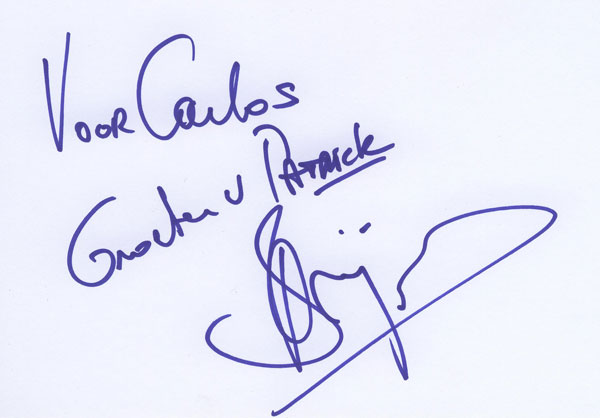 Voor Carlos
Groeten v Patrick